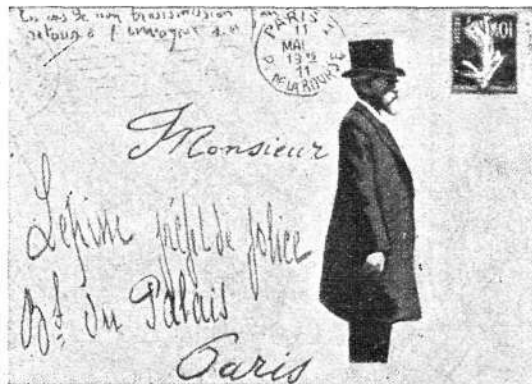 En cas de non transmission
retour à l'envoyeur S.M
PARIS
11
MAI
1912
11
P. DE LA BOURSE
10
Monsieur
Lépine préft de police
Bd. du Palais
Paris